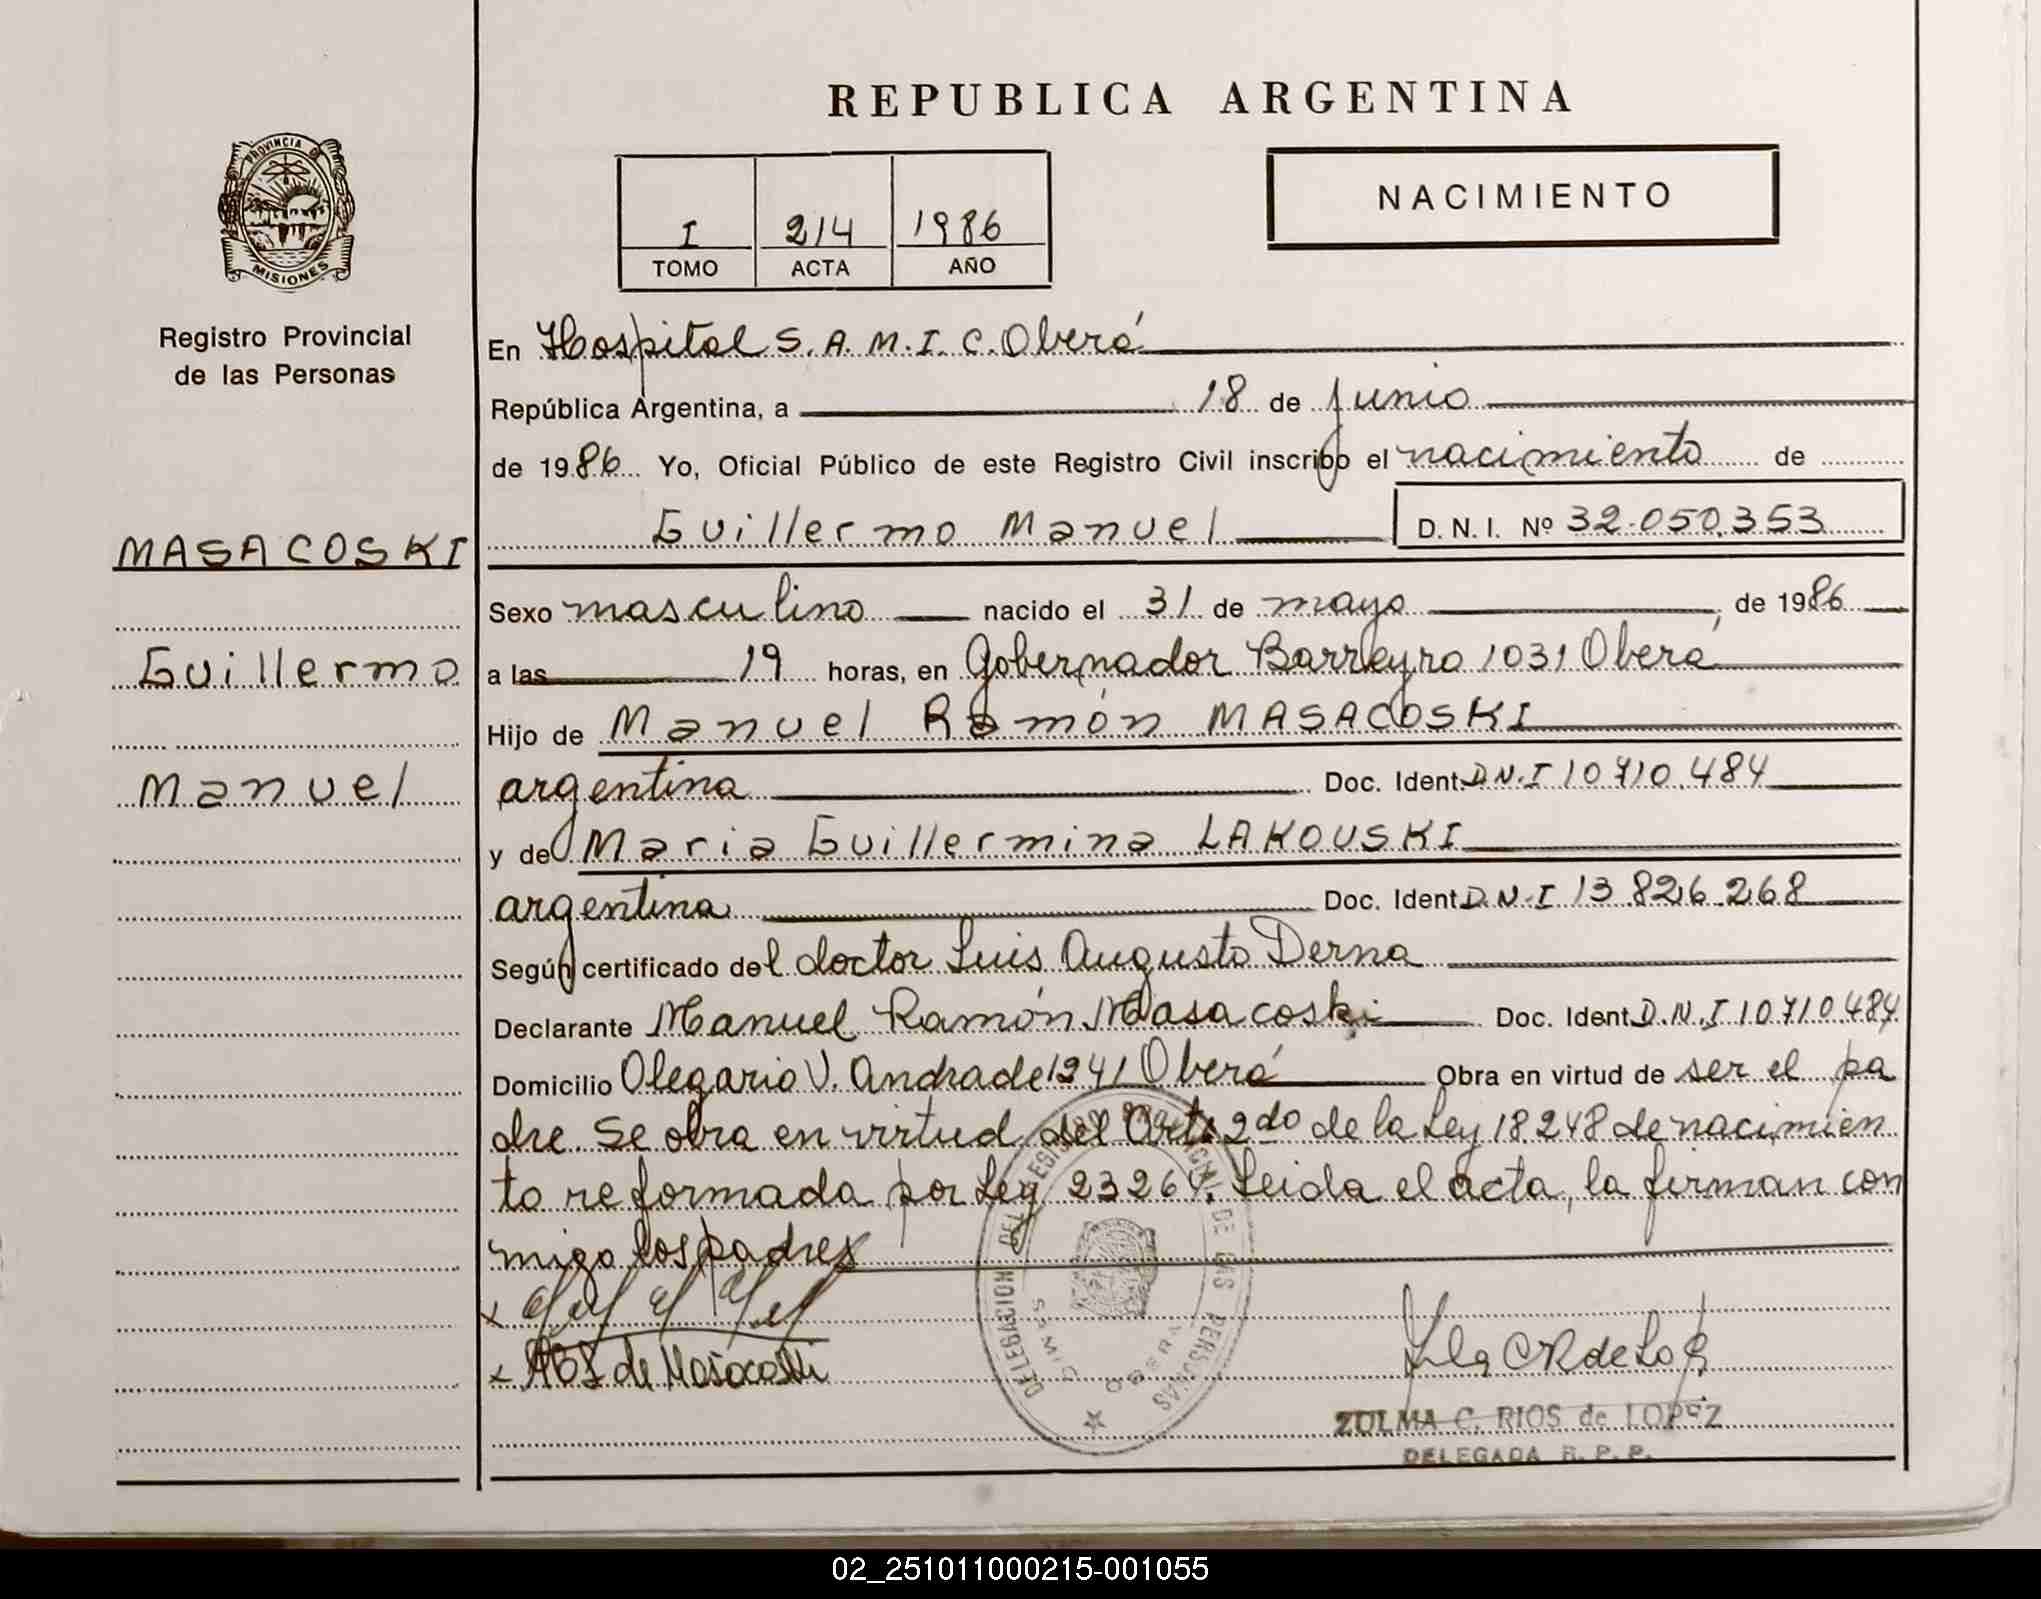 REPUBLICA ARGENTINA
PROVINCIA DE
MISIONES
Registro Provincial
de las Personas
I 214 1986
TOMO ACTA AÑO
NACIMIENTO
MASACOSKI
Guillermo
Manuel
En Hospital S.A.M.I.C. Oberá
República Argentina, a 18 de junio
de 1986 Yo, Oficial Público de este Registro Civil inscribo el nacimiento de
Guillermo Manuel D.N.I. Nº 32.050.353
Sexo masculino nacido el 31 de mayo, de 1986
a las 19 horas, en Gobernador Barreyro 1031 Oberá
Hijo de Manuel Ramón MASACOSKI
argentina Doc. Ident. D.N.I 10.710.484
y de Maria Guillermina LAKOUSKI
argentina Doc. Ident. D.N.I 13.826.268
Según certificado del doctor Luis Augusto Derna
Declarante Manuel Ramón Masacoski Doc. Ident. D.N.I 10.710.484
Domicilio Olegario V. Andrade 1241 Oberá Obra en virtud de ser el pa
dre. Se obra en virtud del Art. 2do de la Ley 18248 de nacimien
to reformada por Ley 23264. Leida el acta, la firman con
migo los padres
x
x de Masacoski
DELEGACION DEL REGISTRO PROVINCIAL DE LAS PERSONAS
SAMIC OBERA
ZULMA C. RIOS de LOPEZ
DELEGADA R. P. P.
02_251011000215-001055